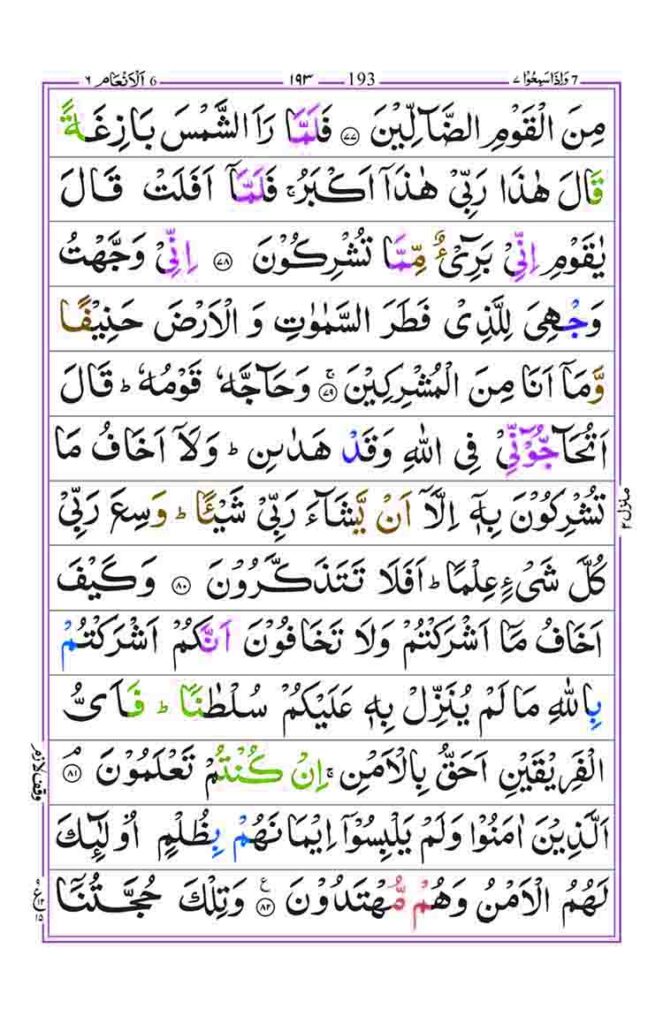 وَاِذَاسَمِعُوْا ٧ 7 193 ١٩٣ 6 اَلْاَنْعَام ٦
مِنَ الْقَوْمِ الضَّآلِّيْنَ ﴿٧٧﴾ فَلَمَّا رَاَ الشَّمْسَ بَازِغَةً
قَالَ هٰذَا رَبِّيْ هٰذَآ اَكْبَرُ ۚ فَلَمَّآ اَفَلَتْ قَالَ
يٰقَوْمِ اِنِّيْ بَرِيْٓءٌ مِّمَّا تُشْرِكُوْنَ ﴿٧٨﴾ اِنِّيْ وَجَّهْتُ
وَجْهِيَ لِلَّذِيْ فَطَرَ السَّمٰوٰتِ وَ الْاَرْضَ حَنِيْفًا
وَّمَآ اَنَا مِنَ الْمُشْرِكِيْنَ ﴿٧٩﴾ ۚ وَحَآجَّهٗ قَوْمُهٗ ؕ قَالَ
اَتُحَآجُّوْٓنِّيْ فِي اللّٰهِ وَقَدْ هَدٰىنِ ؕ وَلَآ اَخَافُ مَا
تُشْرِكُوْنَ بِهٖٓ اِلَّآ اَنْ يَّشَآءَ رَبِّيْ شَيْـًٔا ؕ وَسِعَ رَبِّيْ
كُلَّ شَيْءٍ عِلْمًا ؕ اَفَلَا تَتَذَكَّرُوْنَ ﴿٨٠﴾ وَكَيْفَ
اَخَافُ مَآ اَشْرَكْتُمْ وَلَا تَخَافُوْنَ اَنَّكُمْ اَشْرَكْتُمْ
بِاللّٰهِ مَا لَمْ يُنَزِّلْ بِهٖ عَلَيْكُمْ سُلْطٰنًا ؕ فَاَيُّ
الْفَرِيْقَيْنِ اَحَقُّ بِالْاَمْنِ ۚ اِنْ كُنْتُمْ تَعْلَمُوْنَ ﴿٨١﴾ ۘ
اَلَّذِيْنَ اٰمَنُوْا وَلَمْ يَلْبِسُوْٓا اِيْمَانَهُمْ بِظُلْمٍ اُولٰٓئِكَ
لَهُمُ الْاَمْنُ وَهُمْ مُّهْتَدُوْنَ ﴿٨٢﴾ ع وَتِلْكَ حُجَّتُنَآ
منزل ٢
وقف لازم